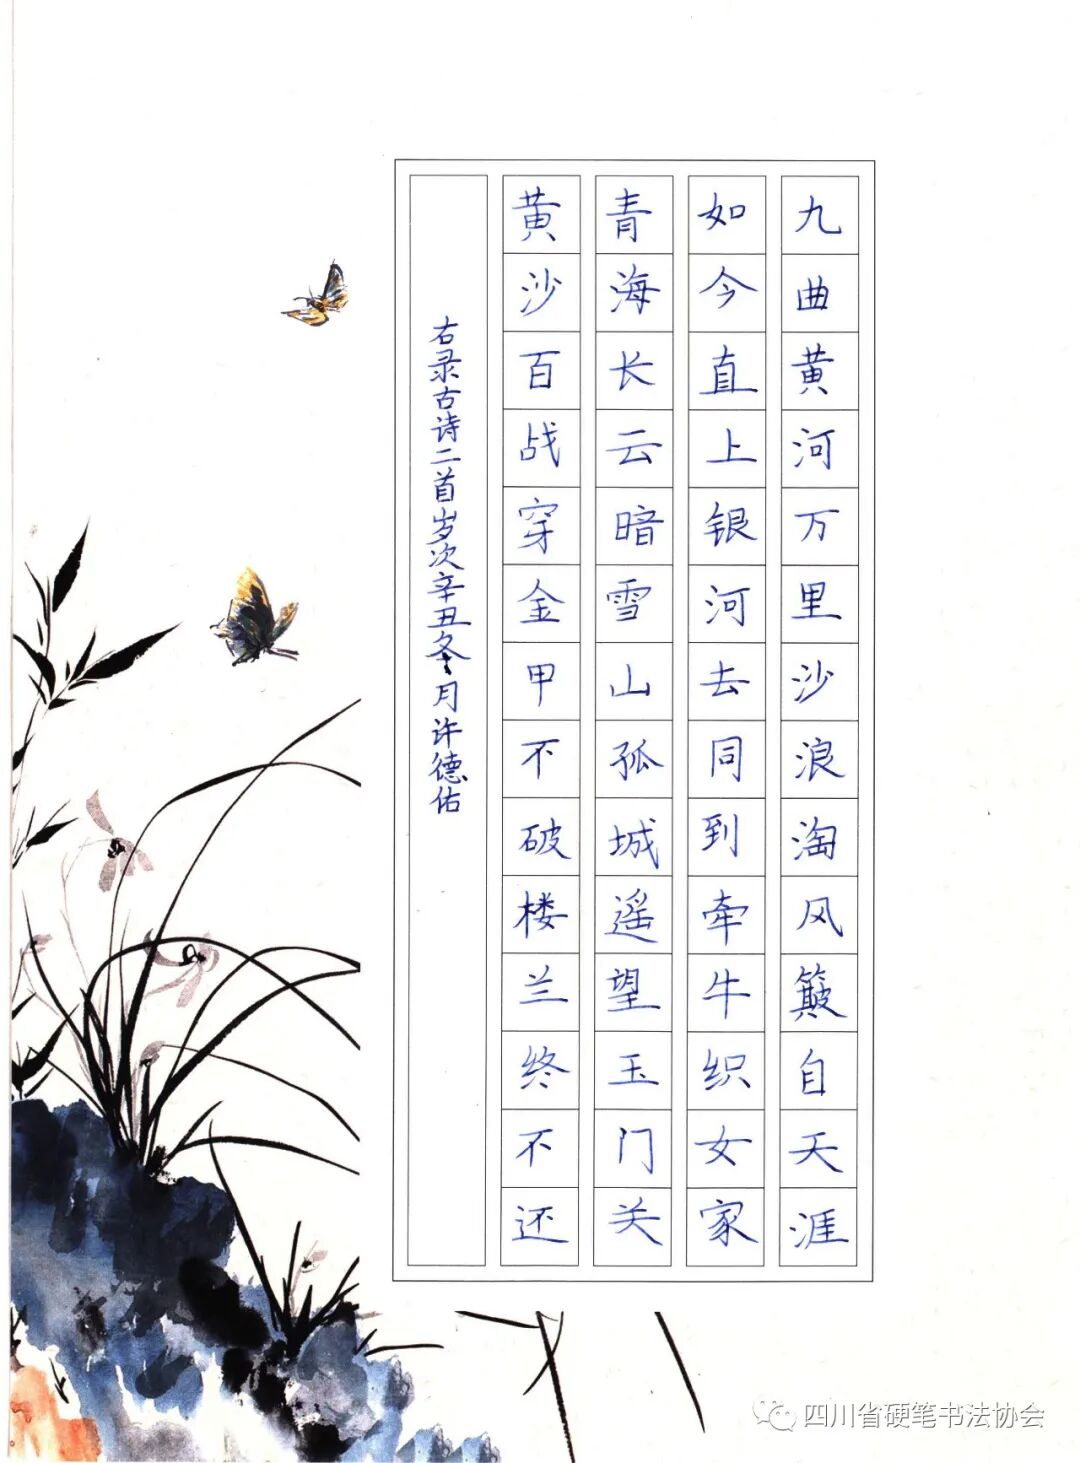 九曲黄河万里沙浪淘风簸自天涯
如今直上银河去同到牵牛织女家
青海长云暗雪山孤城遥望玉门关
黄沙百战穿金甲不破楼兰终不还
右录古诗二首岁次辛丑冬月许德佑
四川省硬笔书法协会